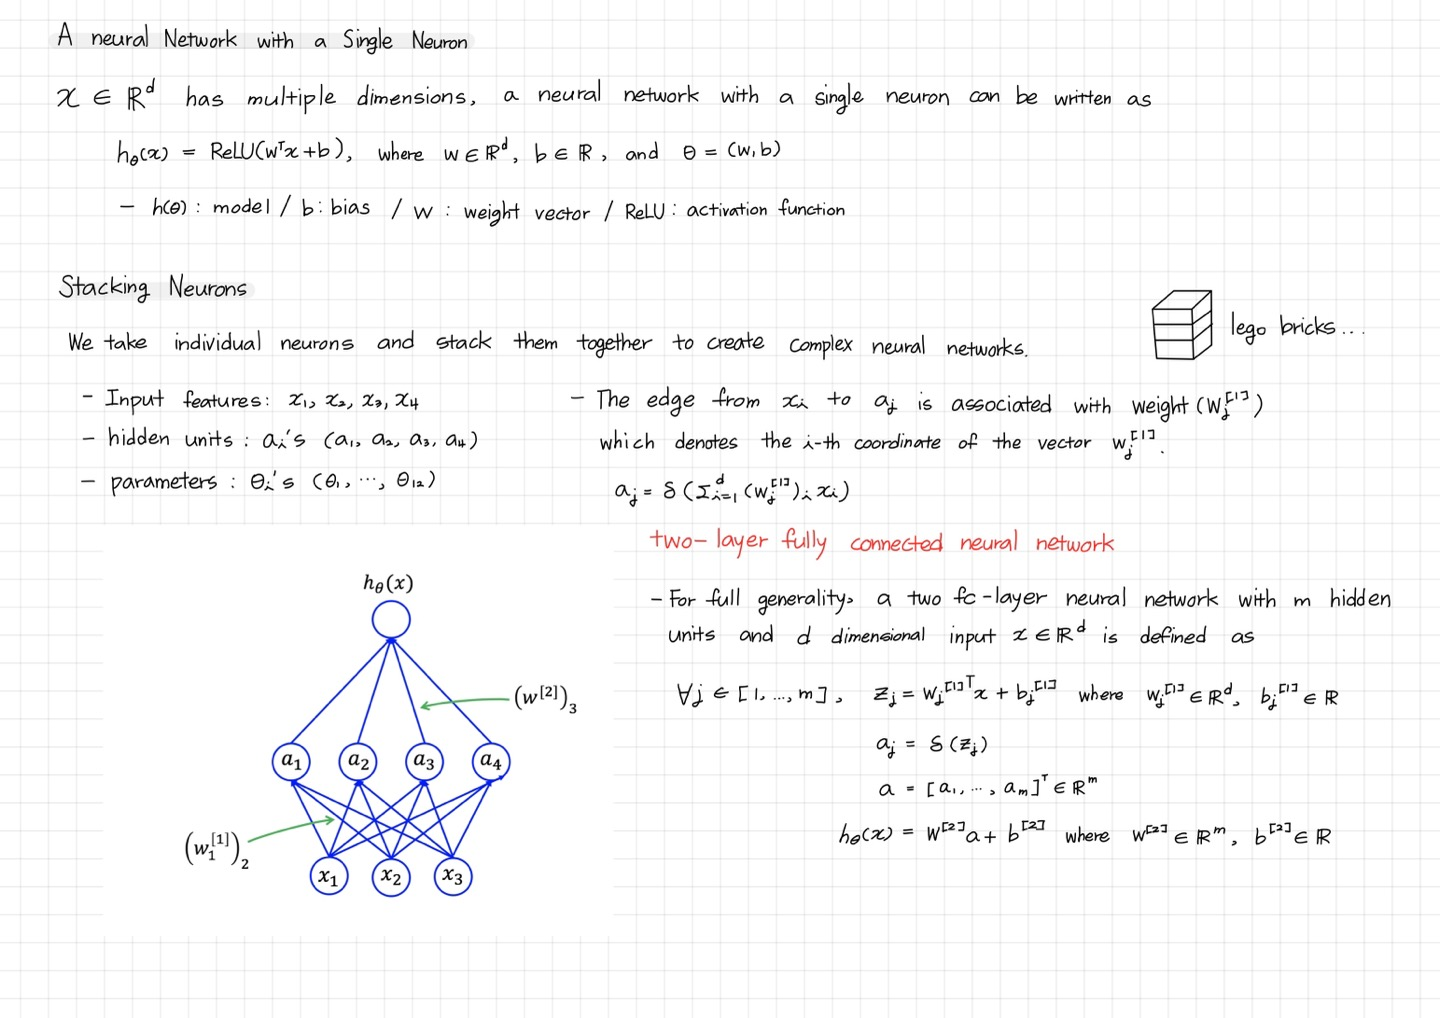 A neural Network with a Single Neuron
x ∈ ℝᵈ has multiple dimensions, a neural network with a single neuron can be written as
h_θ(x) = ReLU(wᵀx + b), where w ∈ ℝᵈ, b ∈ ℝ, and θ = (w, b)
– h(θ) : model / b : bias / w : weight vector / ReLU : activation function
Stacking Neurons
lego bricks...
We take individual neurons and stack them together to create complex neural networks.
– Input features: x₁, x₂, x₃, x₄
– hidden units : aᵢ's (a₁, a₂, a₃, a₄)
– parameters : θᵢ's (θ₁, ⋯, θ₁₂)
– The edge from xᵢ to aⱼ is associated with weight (wⱼ^[1])
which denotes the i-th coordinate of the vector wⱼ^[1].
aⱼ = δ(Σ_{i=1}^d (wⱼ^[1])ᵢ xᵢ)
two-layer fully connected neural network
– For full generality, a two fc-layer neural network with m hidden
units and d dimensional input x ∈ ℝᵈ is defined as
∀j ∈ [1, ..., m], zⱼ = wⱼ^[1]ᵀx + bⱼ^[1] where wⱼ^[1] ∈ ℝᵈ, bⱼ^[1] ∈ ℝ
aⱼ = δ(zⱼ)
a = [a₁, ⋯, aₘ]ᵀ ∈ ℝᵐ
h_θ(x) = W^[2]a + b^[2] where W^[2] ∈ ℝᵐ, b^[2] ∈ ℝ
h_θ(x)
(w^[2])₃
a₁ a₂ a₃ a₄
(w₁^[1])₂
x₁ x₂ x₃